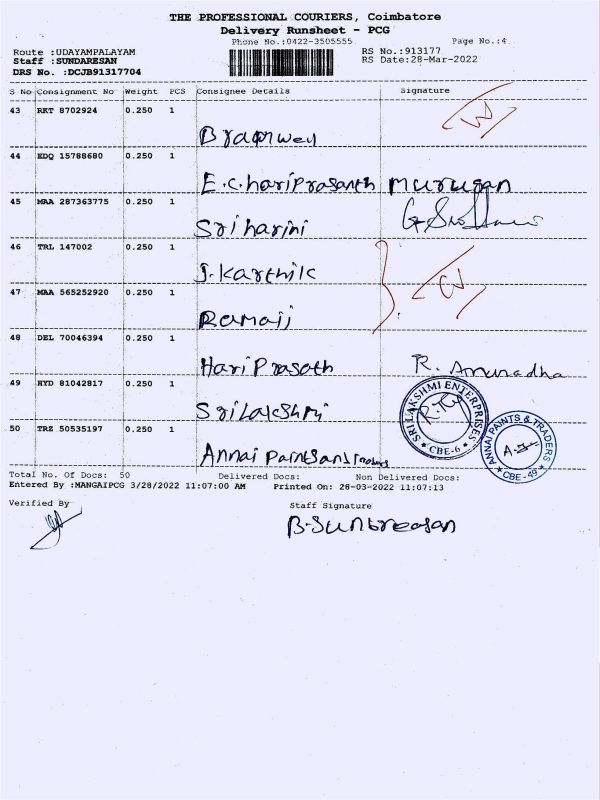 THE PROFESSIONAL COURIERS, Coimbatore
Delivery Runsheet - PCG
Phone No.:0422-3505555 Page No.:4
Route :UDAYAMPALAYAM RS No.:913177
Staff :SUNDARESAN RS Date:28-Mar-2022
DRS No. :DCJB91317704
S No Consignment No Weight PCS Consignee Details Signature
43 RKT 8702924 0.250 1
44 EDQ 15788680 0.250 1
E.C.hariprasanth murugan
45 MAA 287363775 0.250 1
Sriharini
46 TRL 147002 0.250 1
J.Karthik
47 MAA 565252920 0.250 1
Ramaji
48 DEL 70046394 0.250 1
Hari Prasath R. Anuradha
49 HYD 81042817 0.250 1
Srilakshmi SRI LAKSHMI ENTERPRISES CBE-6
50 TRZ 50535197 0.250 1
Annai Paints and Traders ANNAI PAINTS & TRADERS CBE-49
Total No. Of Docs: 50 Delivered Docs: Non Delivered Docs:
Entered By :MANGAIPCG 3/28/2022 11:07:00 AM Printed On: 28-03-2022 11:07:13
Verified By Staff Signature